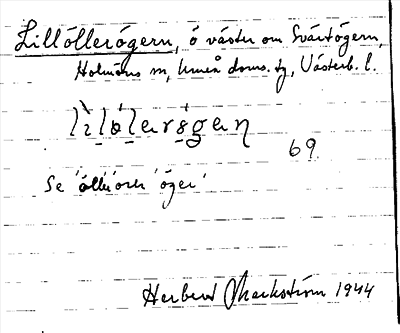 Lillöllerögern, ö väster om Svärtögern,
Holmöns sn, Umeå doms. tg, Västerb. l.
lìlølersgen
69
Se 'öller och 'öger'
Herbert Markström 1944